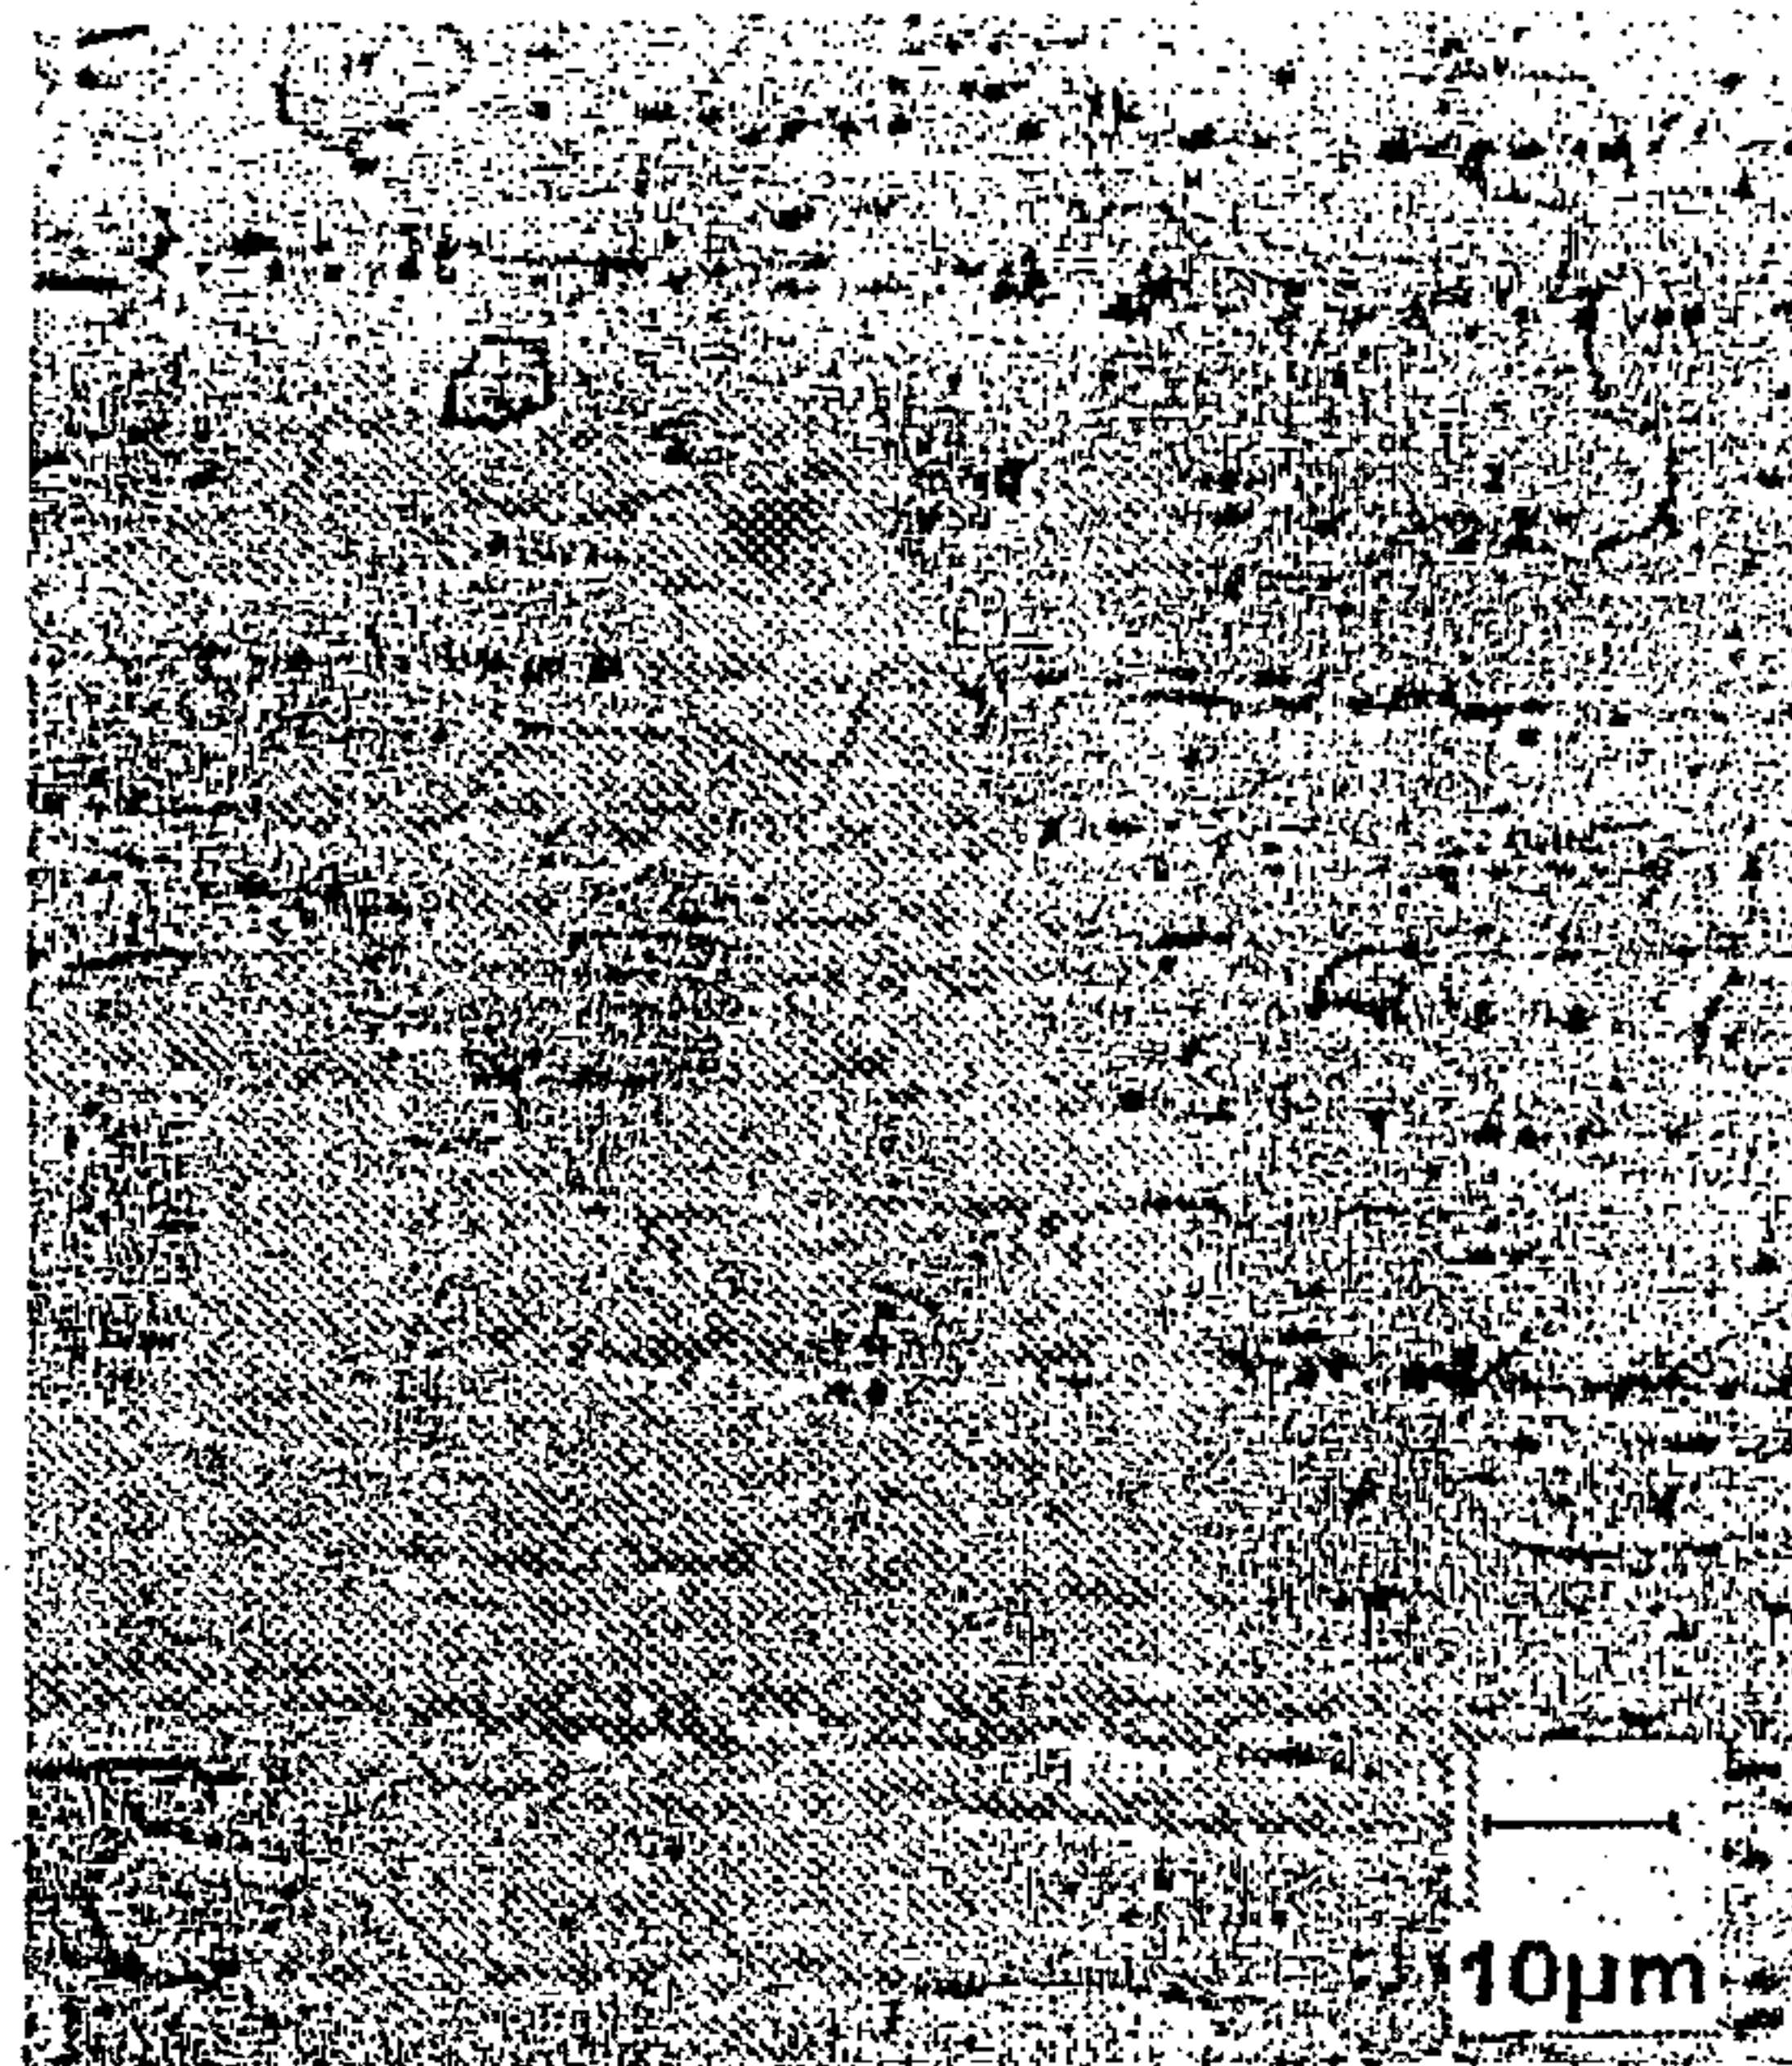 10μm